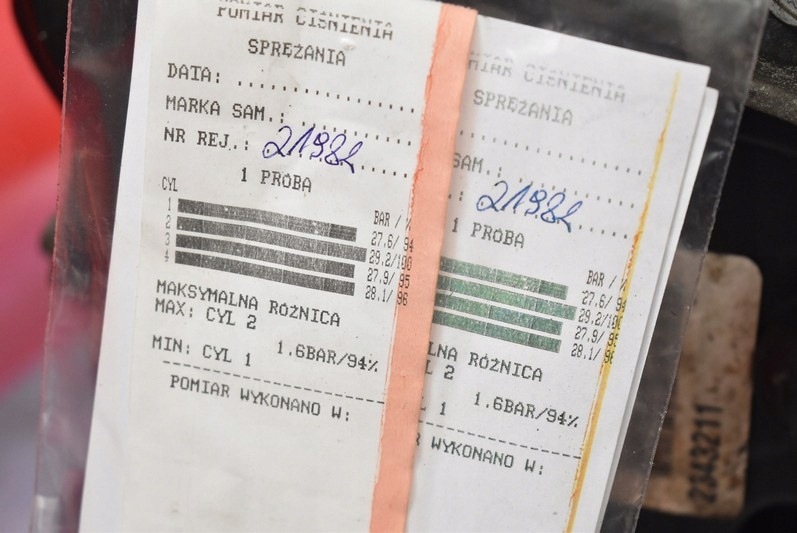 POMIAR CIŚNIENIA
SPRĘŻANIA
DATA: ....................
MARKA SAM.: ..............
NR REJ.: 21982
1 PROBA
CYL BAR / %
1 27.6/ 94
2 29.2/100
3 27.9/ 95
4 28.1/ 96
MAKSYMALNA RÓŻNICA
MAX: CYL 2
MIN: CYL 1 1.6BAR/94%
POMIAR WYKONANO W:
MIAR CIŚNIENIA
SPRĘŻANIA
SAM.: ..............
: 21982
1 PROBA
BAR / %
27.6/ 94
29.2/100
27.9/ 95
28.1/ 96
LNA RÓŻNICA
L 2
L 1 1.6BAR/94%
R WYKONANO W:
2343211